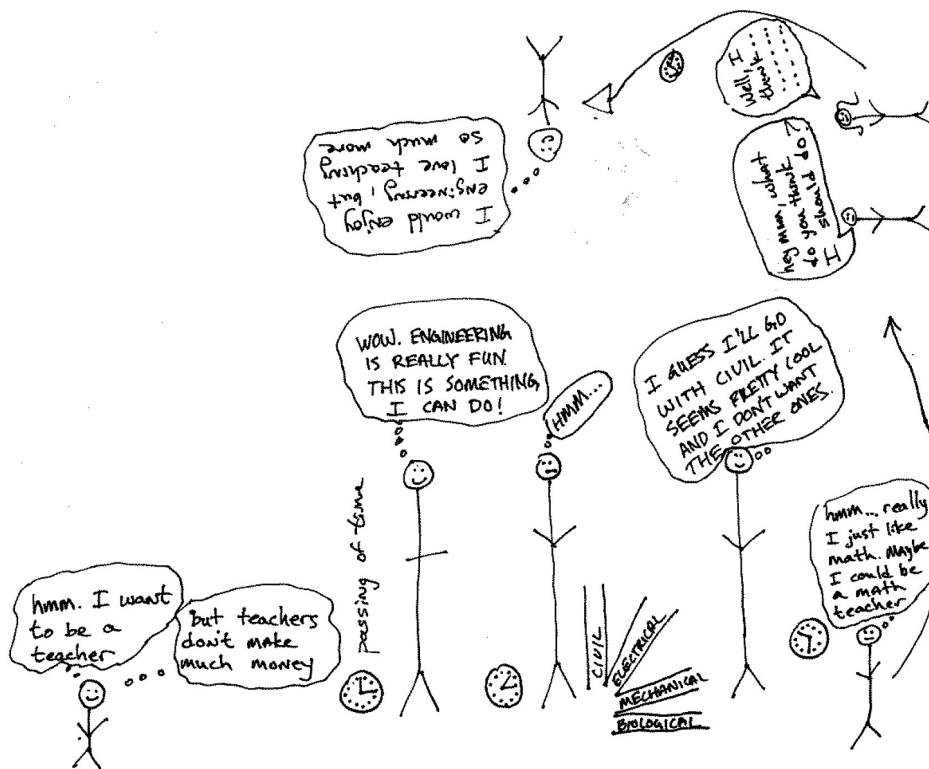 hmm. I want
to be a
teacher
but teachers
don't make
much money
passing of time
WOW. ENGINEERING
IS REALLY FUN.
THIS IS SOMETHING
I CAN DO!
HMM...
CIVIL
ELECTRICAL
MECHANICAL
BIOLOGICAL
I GUESS I'LL GO
WITH CIVIL. IT
SEEMS PRETTY COOL
AND I DON'T WANT
THE OTHER ONES.
hmm... really
I just like
math. Maybe
I could be
a math
teacher
hey mum, what
do you think
I should do?
Well, I
think.......
I would enjoy
engineering, but
I love teaching
so much more